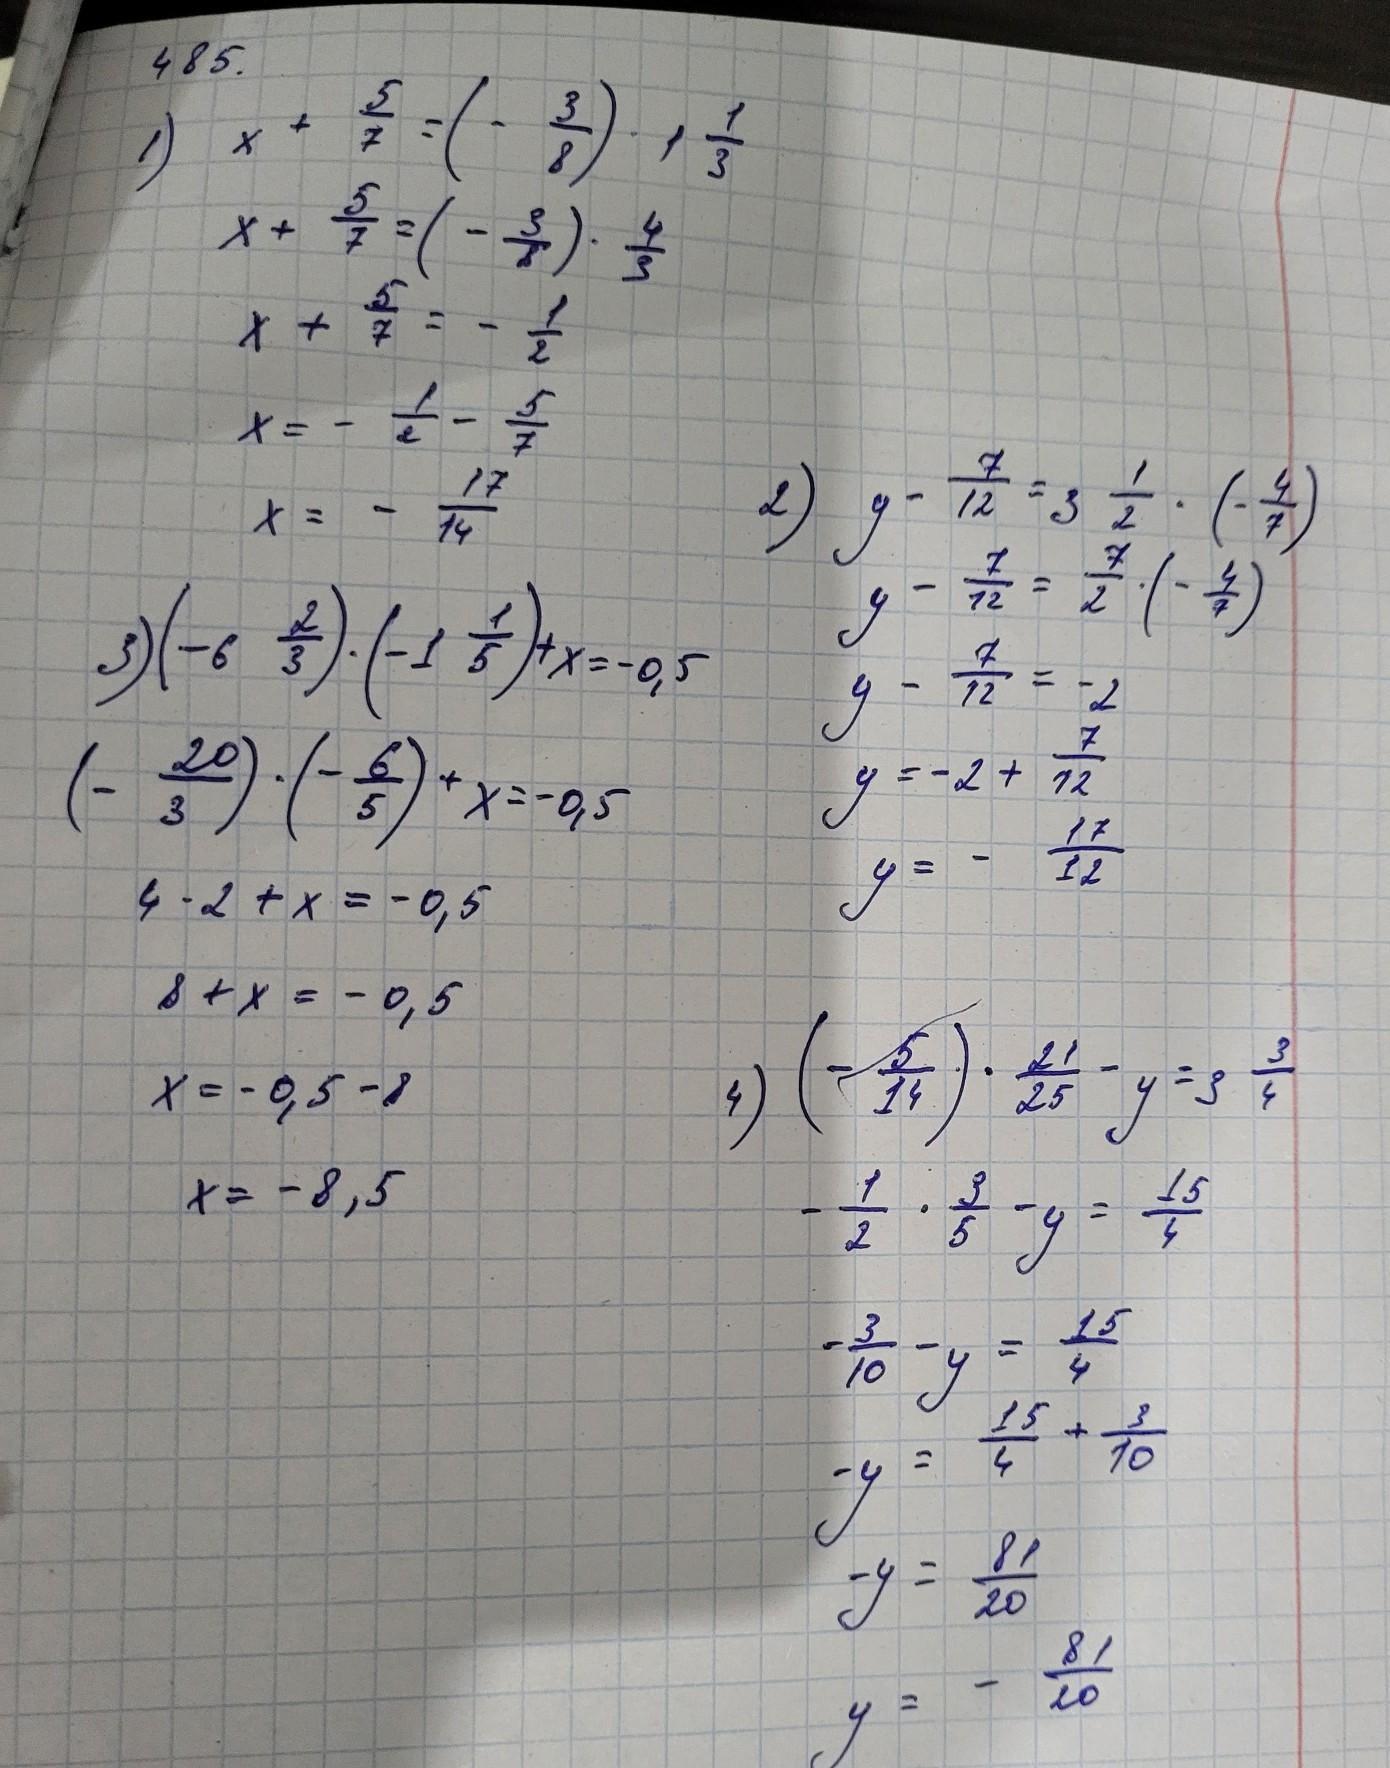 485.
1) x + 5/7 = (- 3/8) · 1 1/3
x + 5/7 = (- 3/8) · 4/3
x + 5/7 = - 1/2
x = - 1/2 - 5/7
x = - 17/14
2) y - 7/12 = 3 1/2 · (- 4/7)
y - 7/12 = 7/2 · (- 4/7)
y - 7/12 = -2
y = -2 + 7/12
y = - 17/12
3) (-6 2/3) · (-1 1/5) + x = -0,5
(- 20/3) · (- 6/5) + x = -0,5
4 · 2 + x = -0,5
8 + x = -0,5
x = -0,5 - 8
x = -8,5
4) (- 5/14) · 21/25 - y = 3 3/4
- 1/2 · 3/5 - y = 15/4
- 3/10 - y = 15/4
-y = 15/4 + 3/10
-y = 81/20
y = - 81/20